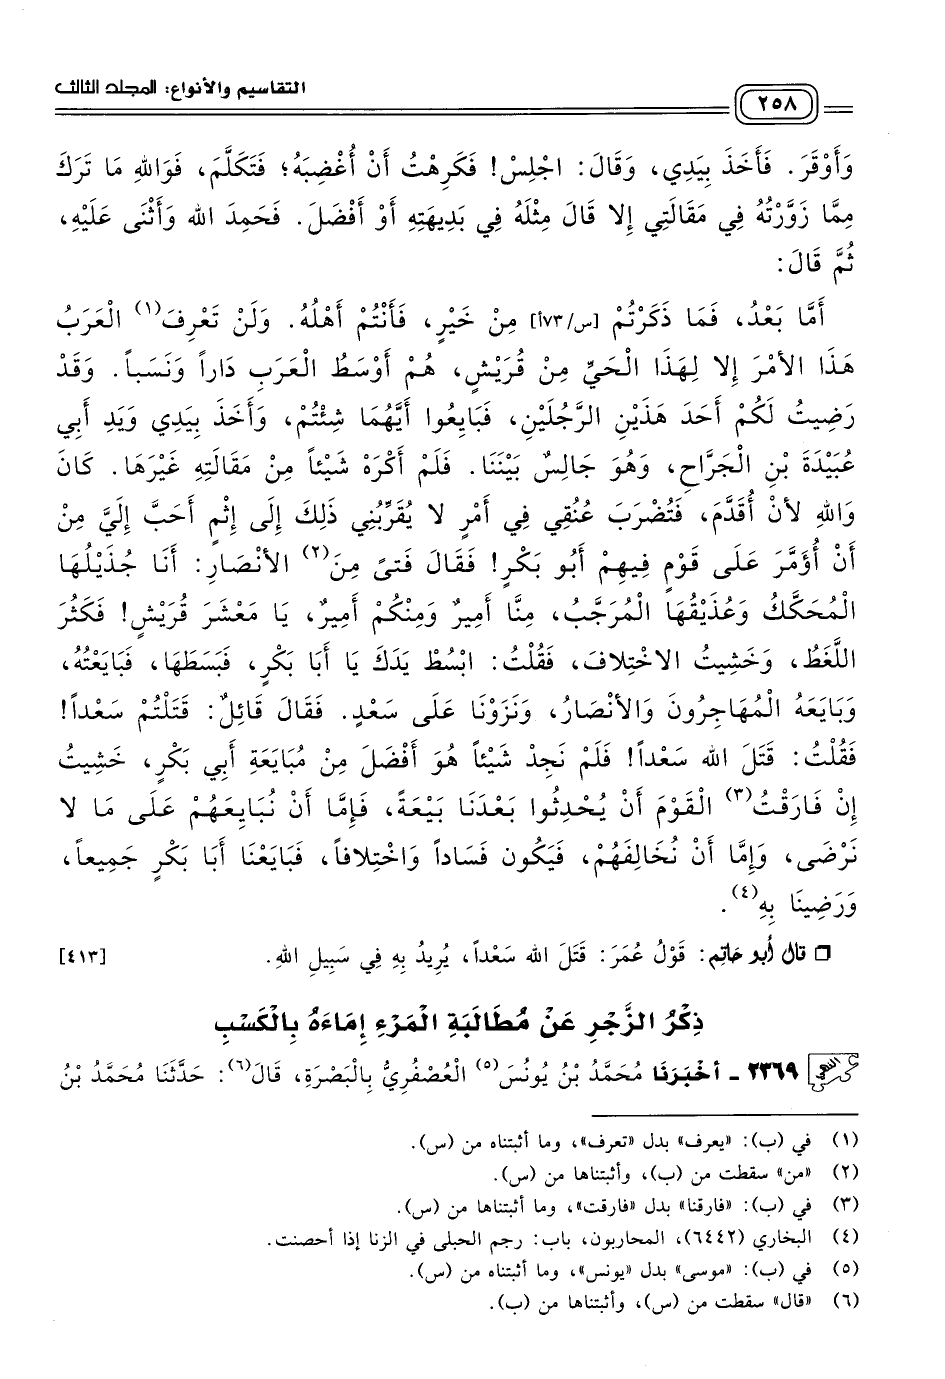 التقاسيم والأنواع: المجلد الثالث
٢٥٨
وَأَوْقَرَ. فَأَخَذَ بِيَدِي، وَقَالَ: اجْلِسْ! فَكَرِهْتُ أَنْ أُغْضِبَهُ؛ فَتَكَلَّمَ، فَوَاللهِ مَا تَرَكَ
مِمَّا زَوَّرْتُهُ فِي مَقَالَتِي إِلا قَالَ مِثْلَهُ فِي بَدِيهَتِهِ أَوْ أَفْضَلَ. فَحَمِدَ الله وَأَثْنَى عَلَيْهِ،
ثُمَّ قَالَ:
أَمَّا بَعْدُ، فَمَا ذَكَرْتُمْ [س/٧٣أ] مِنْ خَيْرٍ، فَأَنْتُمْ أَهْلُهُ. وَلَنْ تَعْرِفَ(١) الْعَرَبُ
هَذَا الأَمْرَ إِلا لِهَذَا الْحَيِّ مِنْ قُرَيْشٍ، هُمْ أَوْسَطُ الْعَرَبِ دَاراً وَنَسَباً. وَقَدْ
رَضِيتُ لَكُمْ أَحَدَ هَذَيْنِ الرَّجُلَيْنِ، فَبَايِعُوا أَيَّهُمَا شِئْتُمْ، وَأَخَذَ بِيَدِي وَيَدِ أَبِي
عُبَيْدَةَ بْنِ الْجَرَّاحِ، وَهُوَ جَالِسٌ بَيْنَنَا. فَلَمْ أَكْرَهْ شَيْئاً مِنْ مَقَالَتِهِ غَيْرَهَا. كَانَ
وَاللهِ لأَنْ أُقَدَّمَ، فَتُضْرَبَ عُنُقِي فِي أَمْرٍ لا يُقَرِّبُنِي ذَلِكَ إِلَى إِثْمٍ أَحَبَّ إِلَيَّ مِنْ
أَنْ أُؤَمَّرَ عَلَى قَوْمٍ فِيهِمْ أَبُو بَكْرٍ! فَقَالَ فَتىً مِنَ(٢) الأَنْصَارِ: أَنَا جُذَيْلُهَا
الْمُحَكَّكُ وَعُذَيْقُهَا الْمُرَجَّبُ، مِنَّا أَمِيرٌ وَمِنْكُمْ أَمِيرٌ، يَا مَعْشَرَ قُرَيْشٍ! فَكَثُرَ
اللَّغَطُ، وَخَشِيتُ الاخْتِلافَ، فَقُلْتُ: ابْسُطْ يَدَكَ يَا أَبَا بَكْرٍ، فَبَسَطَهَا، فَبَايَعْتُهُ،
وَبَايَعَهُ الْمُهَاجِرُونَ وَالأَنْصَارُ، وَنَزَوْنَا عَلَى سَعْدٍ. فَقَالَ قَائِلٌ: قَتَلْتُمْ سَعْداً!
فَقُلْتُ: قَتَلَ الله سَعْداً! فَلَمْ نَجِدْ شَيْئاً هُوَ أَفْضَلَ مِنْ مُبَايَعَةِ أَبِي بَكْرٍ، خَشِيتُ
إِنْ فَارَقْتُ(٣) الْقَوْمَ أَنْ يُحْدِثُوا بَعْدَنَا بَيْعَةً، فَإِمَّا أَنْ نُبَايِعَهُمْ عَلَى مَا لا
نَرْضَى، وَإِمَّا أَنْ نُخَالِفَهُمْ، فَيَكُون فَسَاداً وَاخْتِلافاً، فَبَايَعْنَا أَبَا بَكْرٍ جَمِيعاً،
وَرَضِينَا بِهِ(٤).
قال أبو حاتم: قَوْلُ عُمَرَ: قَتَلَ الله سَعْداً، يُرِيدُ بِهِ فِي سَبِيلِ اللهِ. [٤١٣]
ذِكْرُ الزَّجْرِ عَنْ مُطَالَبَةِ الْمَرْءِ إِمَاءَهُ بِالْكَسْبِ
٢٣٦٩ - أَخْبَرَنَا مُحَمَّدُ بْنُ يُونُسَ(٥) الْعُصْفُرِيُّ بِالْبَصْرَةِ، قَالَ(٦): حَدَّثَنَا مُحَمَّدُ بْنُ
(١) في (ب): «يعرف» بدل «تعرف»، وما أثبتناه من (س).
(٢) «من» سقطت من (ب)، وأثبتناها من (س).
(٣) في (ب): «فارقنا» بدل «فارقت»، وما أثبتناها من (س).
(٤) البخاري (٦٤٤٢)، المحاربون، باب: رجم الحبلى في الزنا إذا أحصنت.
(٥) في (ب): «موسى» بدل «يونس»، وما أثبتناه من (س).
(٦) «قال» سقطت من (س)، وأثبتناها من (ب).